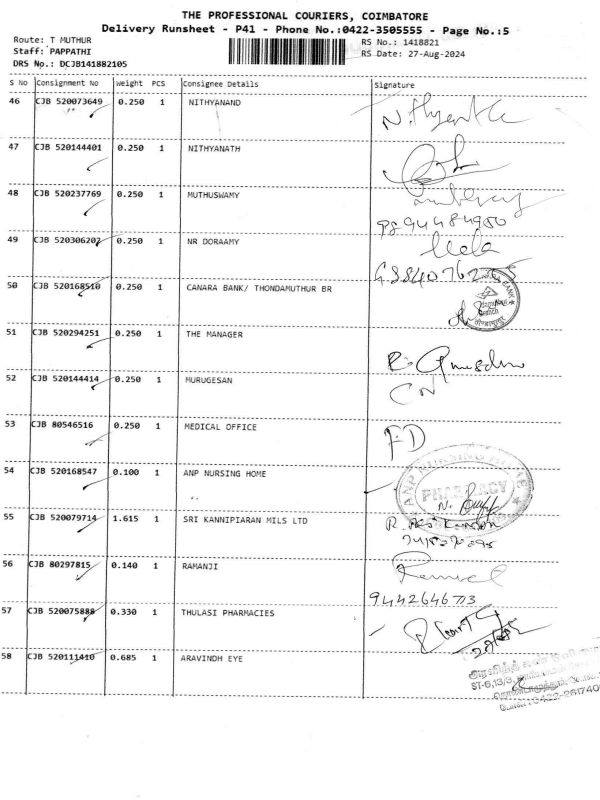 THE PROFESSIONAL COURIERS, COIMBATORE
Delivery Runsheet - P41 - Phone No.:0422-3505555 - Page No.:5
Route: T MUTHUR
RS No.: 1418821
Staff: PAPPATHI
RS Date: 27-Aug-2024
DRS No.: DCJB141882105
S No Consignment No Weight PCS Consignee Details Signature
46 CJB 520073649 0.250 1 NITHYANAND
47 CJB 520144401 0.250 1 NITHYANATH
48 CJB 520237769 0.250 1 MUTHUSWAMY
9894484950
49 CJB 520306202 0.250 1 NR DORAAMY
50 CJB 520168510 0.250 1 CANARA BANK/ THONDAMUTHUR BR
51 CJB 520294251 0.250 1 THE MANAGER
52 CJB 520144414 0.250 1 MURUGESAN
53 CJB 80546516 0.250 1 MEDICAL OFFICE
FD
54 CJB 520168547 0.100 1 ANP NURSING HOME
ANP NURSING HOME
PHARMACY
55 CJB 520079714 1.615 1 SRI KANNIPIARAN MILS LTD
56 CJB 80297815 0.140 1 RAMANJI
9442646713
57 CJB 520075888 0.330 1 THULASI PHARMACIES
58 CJB 520111410 0.685 1 ARAVINDH EYE